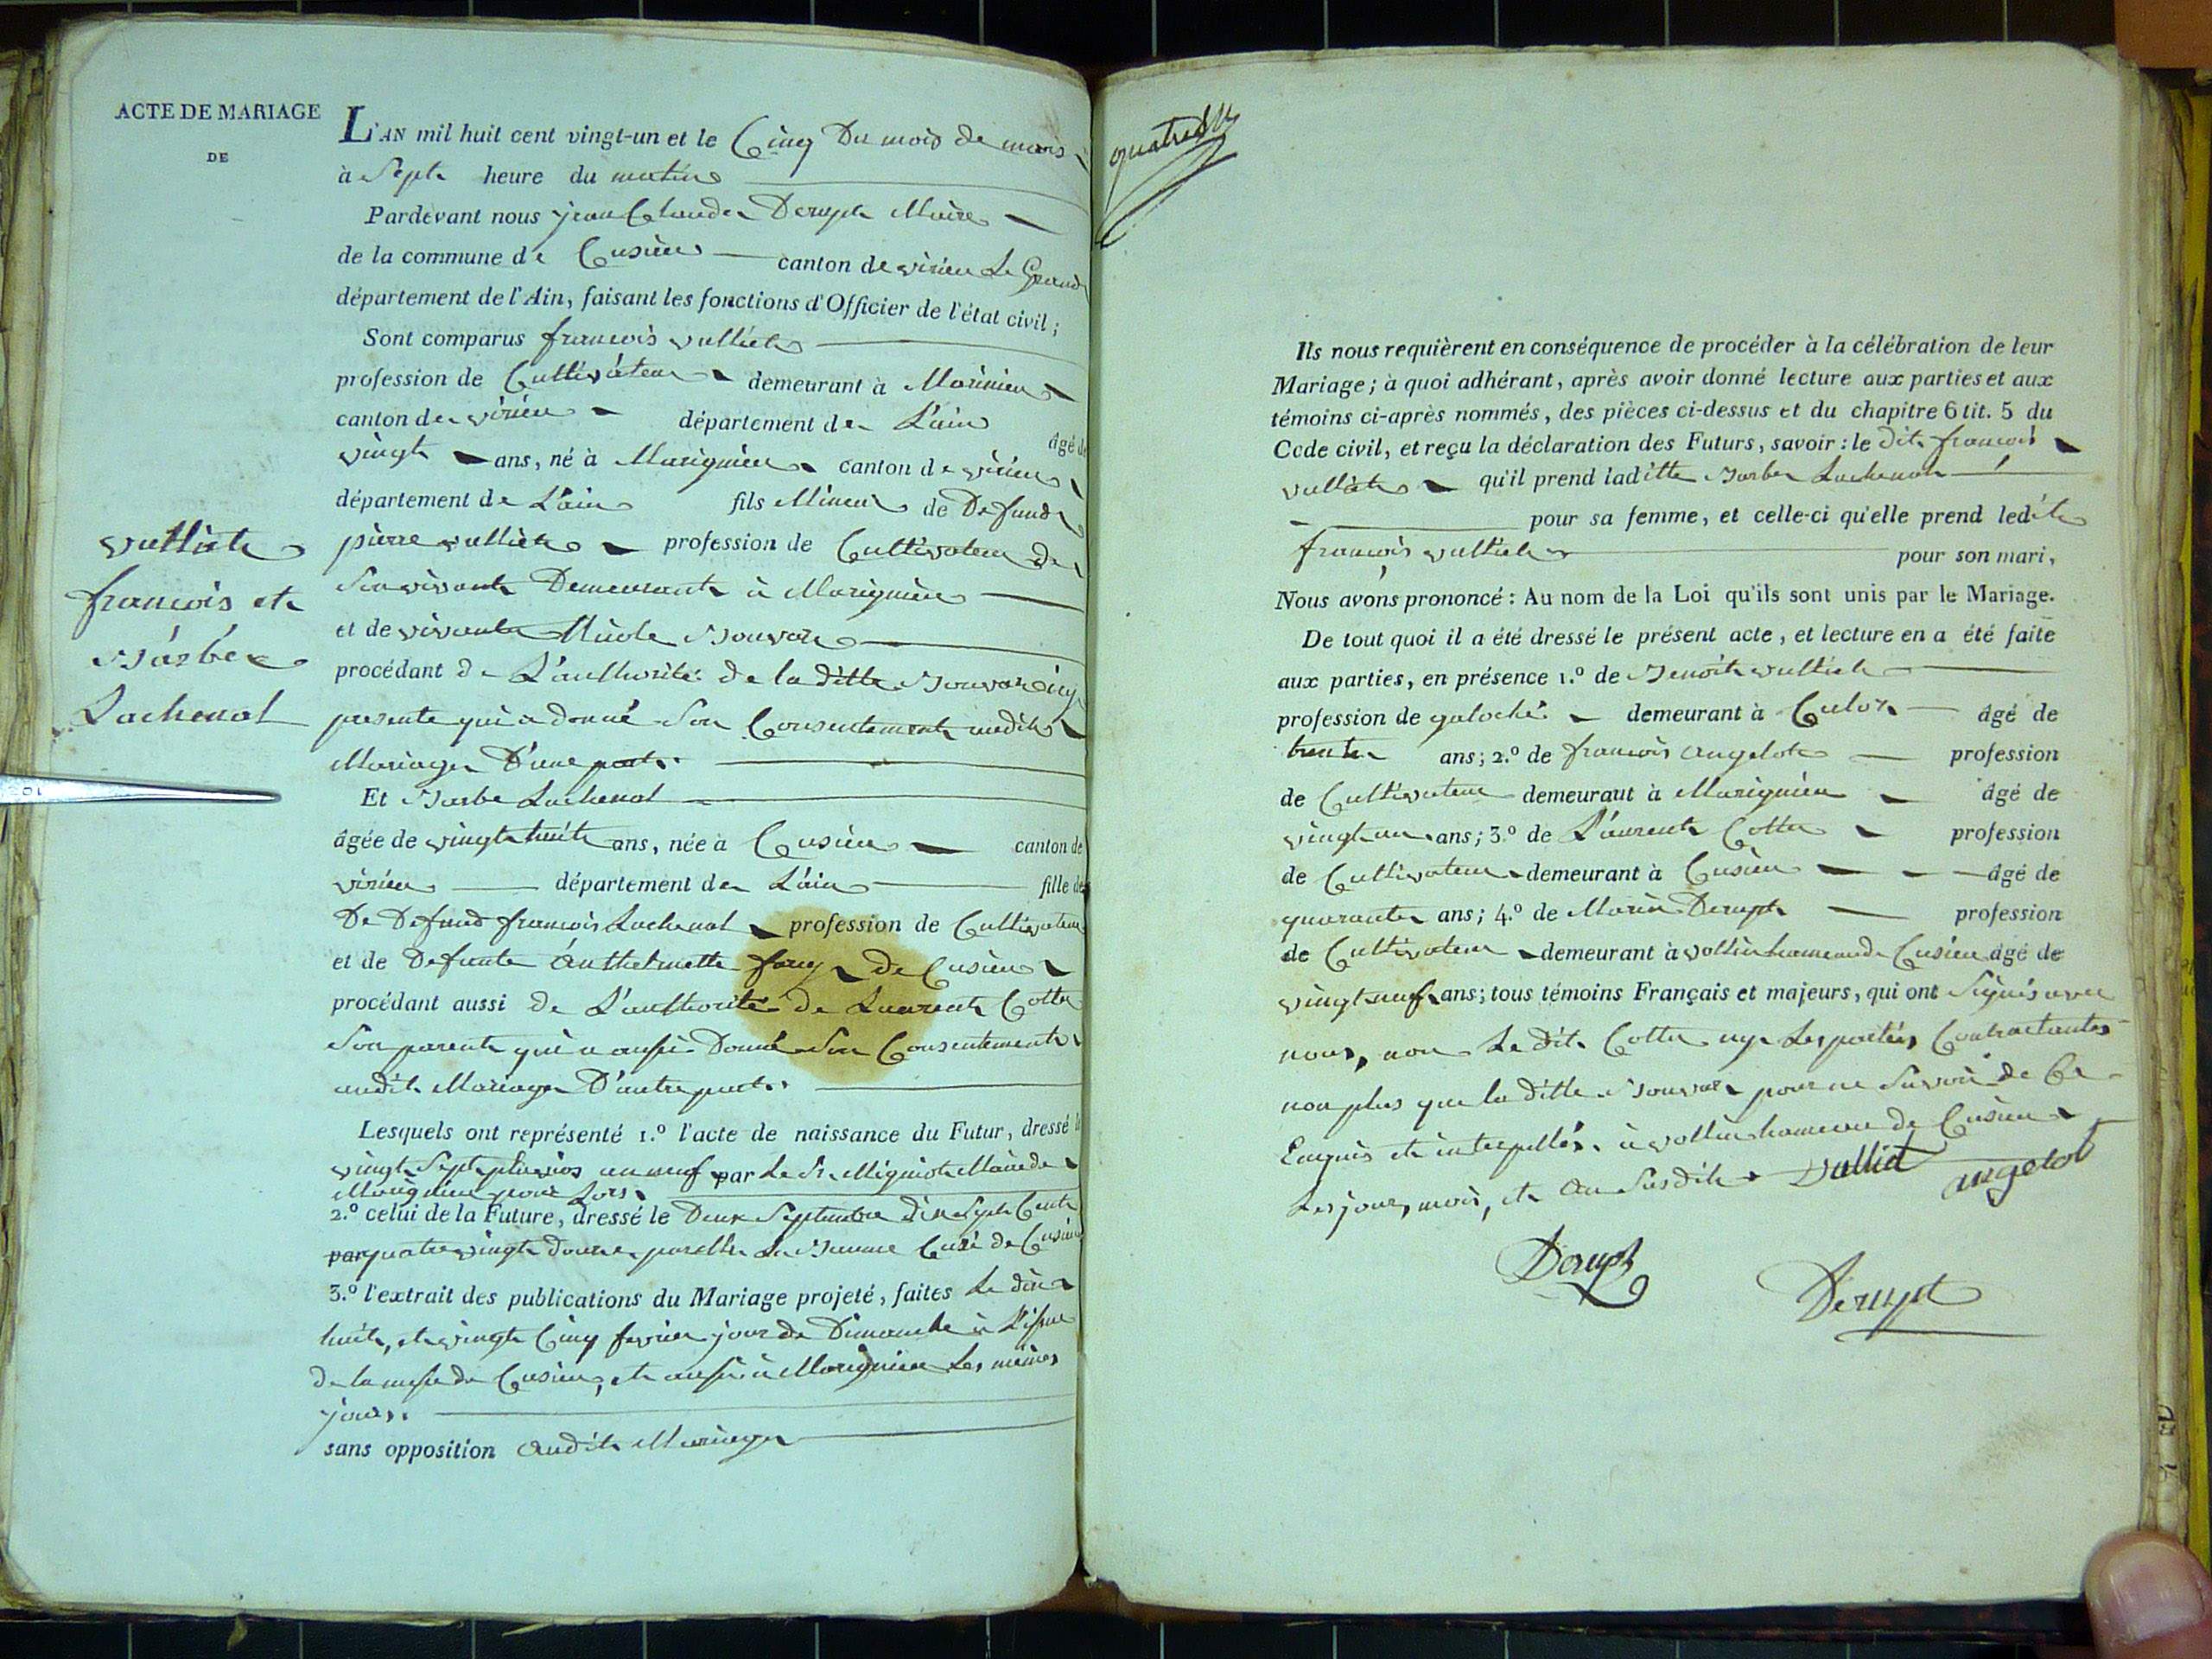 ACTE DE MARIAGE
DE
vulliet
francois et
Barbe
Lachenal
L'AN mil huit cent vingt-un et le Cinq Du mois de mars
à Sept heure du matin
Pardevant nous jean Claude Derupt Maire
de la commune de Cusieu canton de virieu Le Grand
département de l'Ain, faisant les fonctions d'Officier de l'état civil;
Sont comparus francois vulliet
profession de Cultivateur demeurant à Marinieu
canton de virieu département de L'ain âgé de
vingt ans, né à Marignieu canton de virieu
département de L'ain fils Mineur de Defunt
pierre vulliet profession de Cultivateur de
Son vivant Demeurant à Marignieu
et de vivante Nicole Bouvar
procédant de L'authorité de la ditte Bouvar icy
presente qui a donné Son Consentement audit
Mariage D'une part.
Et Barbe Lachenal
âgée de vingt huit ans, née à Cusieu canton de
virieu département de L'ain fille de
De Defunt francois Lachenal profession de Cultivateur
et de Defunte Anthelmette de Cusieu
procédant aussi de L'authorité de Laurent Cottu
Son parent qui a aussi Donné Son Consentement
audit Mariage D'autre part.
Lesquels ont représenté 1.º l'acte de naissance du Futur, dressé le
vingt Sept pluvios an neuf par Le Sr. Migniot Maire de
Marignieu pour Lors.
2.º celui de la Future, dressé le Deux Septembre dix Sept Cent
par quatre vingt douze, Curé de Cusieu
3.º l'extrait des publications du Mariage projeté, faites Le dix
huit, et vingt Cinq fevrier jour de Dimanche à L'issue
de la messe de Cusieu, et aussi à Marignieu Les mêmes
jours.
sans opposition audit Mariage
Ils nous requièrent en conséquence de procéder à la célébration de leur
Mariage; à quoi adhérant, après avoir donné lecture aux parties et aux
témoins ci-après nommés, des pièces ci-dessus et du chapitre 6 tit. 5 du
Code civil, et reçu la déclaration des Futurs, savoir: le dit francois
vulliet qu'il prend laditte Barbe Lachenal
pour sa femme, et celle-ci qu'elle prend ledit
francois vulliet pour son mari,
Nous avons prononcé: Au nom de la Loi qu'ils sont unis par le Mariage.
De tout quoi il a été dressé le présent acte, et lecture en a été faite
aux parties, en présence 1.º de Benoit vulliet
profession de galoché demeurant à Culoz âgé de
trente ans; 2.º de francois angelot profession
de Cultivateur demeurant à Marignieu âgé de
vingt un ans; 3.º de Laurent Cottu profession
de Cultivateur demeurant à Cusieu âgé de
quarante ans; 4.º de Marin Derupt profession
de Cultivateur demeurant à vollin hameau de Cusieu âgé de
vingt neuf ans; tous témoins Français et majeurs, qui ont Signés avec
nous, non Le dit Cottu ny Les parties Contractantes
non plus que la ditte Bouvar pour ne Savoir de Ce
Enquis et interpellés. à vollin hameau de Cusieu
Les jour, mois, et an Susdit Vulliet angelot
Derupt
Derupt